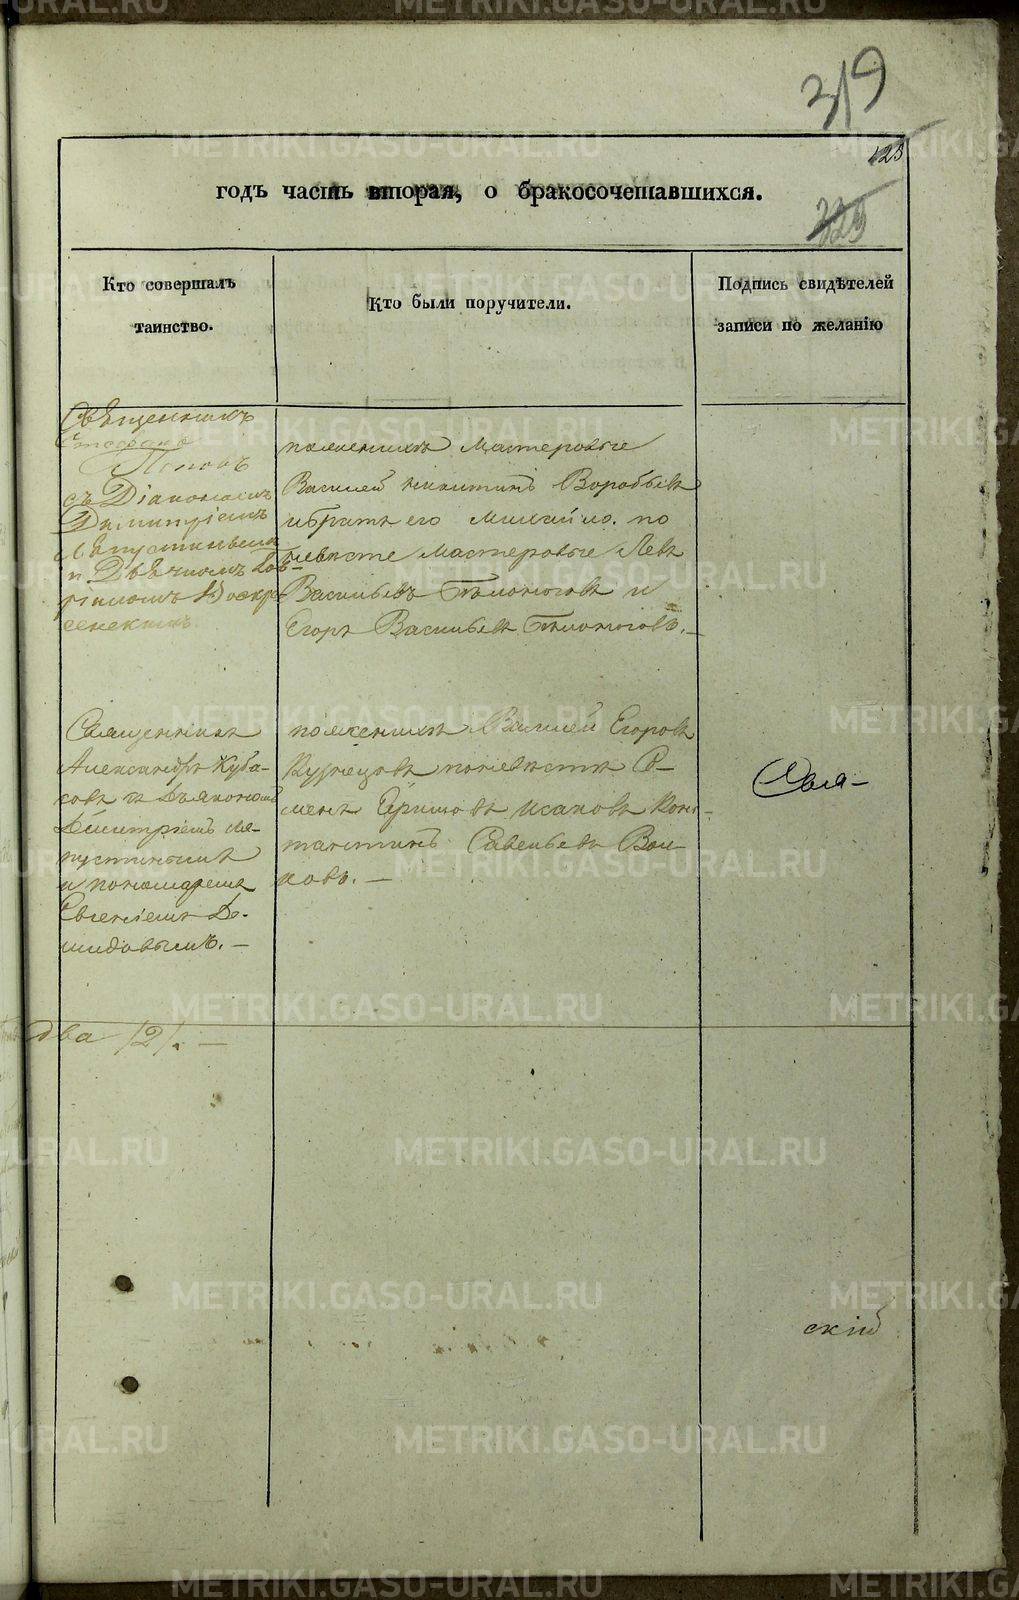 319
123
годъ часть вторая, о бракосочетавшихся.
Кто совершалъ
таинство.
Кто были поручители.
Подпись свидѣтелей
записи по желанію
Священникъ
Стефанъ
Поповъ
съ Діакономъ
Димитріемъ
Лѣпустинымъ
и Дьячкомъ
Воскре
сенскимъ.
поженихѣ Мастеровые
Василей Никитинъ Воробьевъ
ибратъ его Михайло. по
невѣсте мастеровые Левъ
Васильевъ Бѣлоноговъ и
Егоръ Васильевъ Бѣлоноговъ. —
Священникъ
Александръ Куба-
совъ съ Дьякономъ
Димитріемъ Ля-
пустинымъ
и пономаремъ
Евгеніемъ Де-
мидовымъ. —
поженихѣ Василей Егоровъ
Кузнецовъ поневѣстѣ Се-
менъ Исаковъ Конс-
тантинъ Савельевъ Вол-
ковъ. —
два /2/. —
скій
METRIKI.GASO-URAL.RU